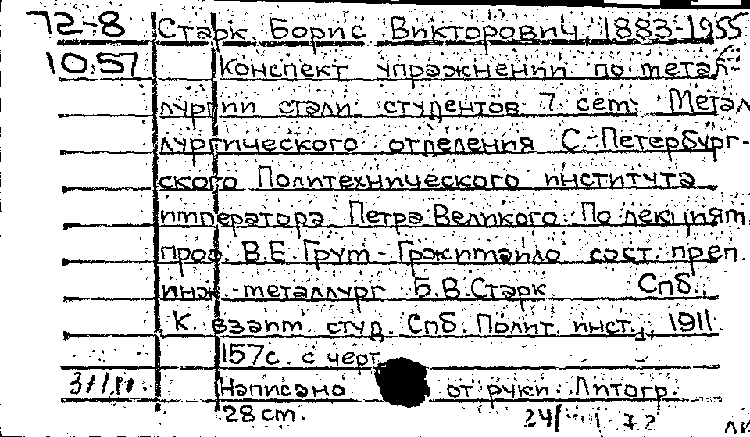 72-8 Старк, Борис Викторович, 1883-1955
10.57 Конспект упражнений по метал-
лургии стали студентов 7 сем. Метал
лургического отделения С-Петербург-
ского Политехнического института
императора Петра Великого. По лекциям
проф. В.Е. Грум-Гржимайло сост. преп.
инж.-металлург Б.В. Старк Спб.,
К взаим. студ. Спб. Полит. инст., 1911
157с. с черт.
Написано от руки. Литогр.
28 см. 24/ 72